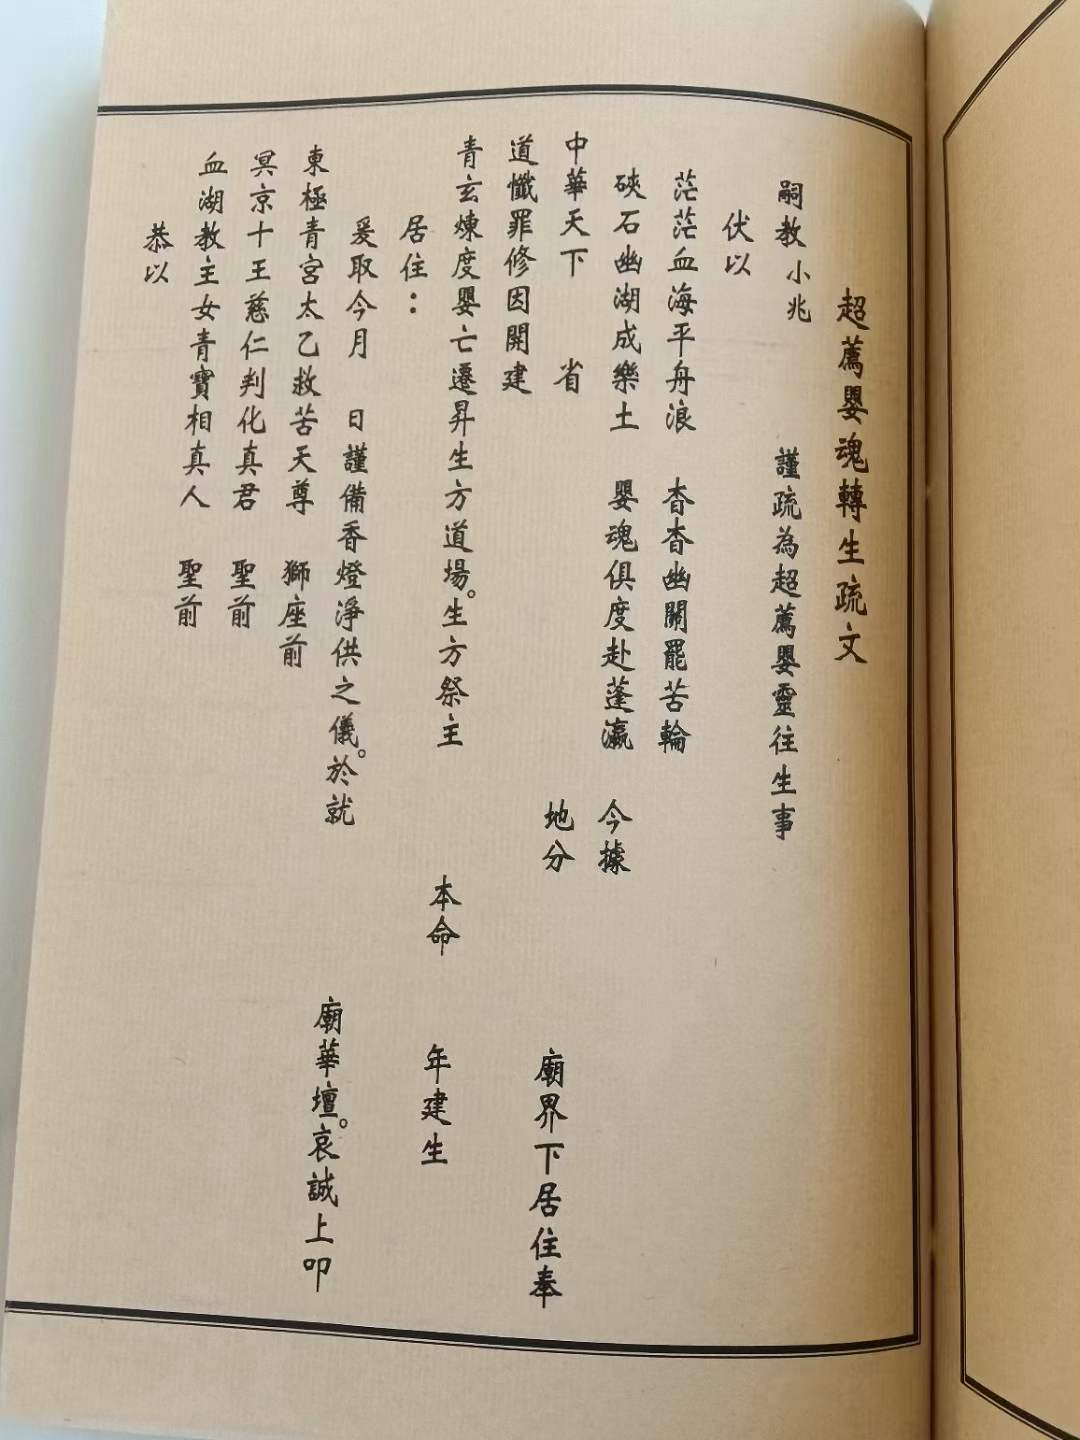 超薦嬰魂轉生疏文
嗣教小兆 謹疏為超薦嬰靈往生事
伏以
茫茫血海平舟浪 杳杳幽關罷苦輪
硤石幽湖成樂土 嬰魂俱度赴蓬瀛 今據
中華天下 省 地分 廟界下居住奉
道懺罪修因開建
青玄煉度嬰亡遷昇生方道場。生方祭主 本命 年建生
居住：
爰取今月 日謹備香燈淨供之儀。於就 廟華壇。哀誠上叩
東極青宮太乙救苦天尊 獅座前
冥京十王慈仁判化真君 聖前
血湖教主女青寶相真人 聖前
恭以